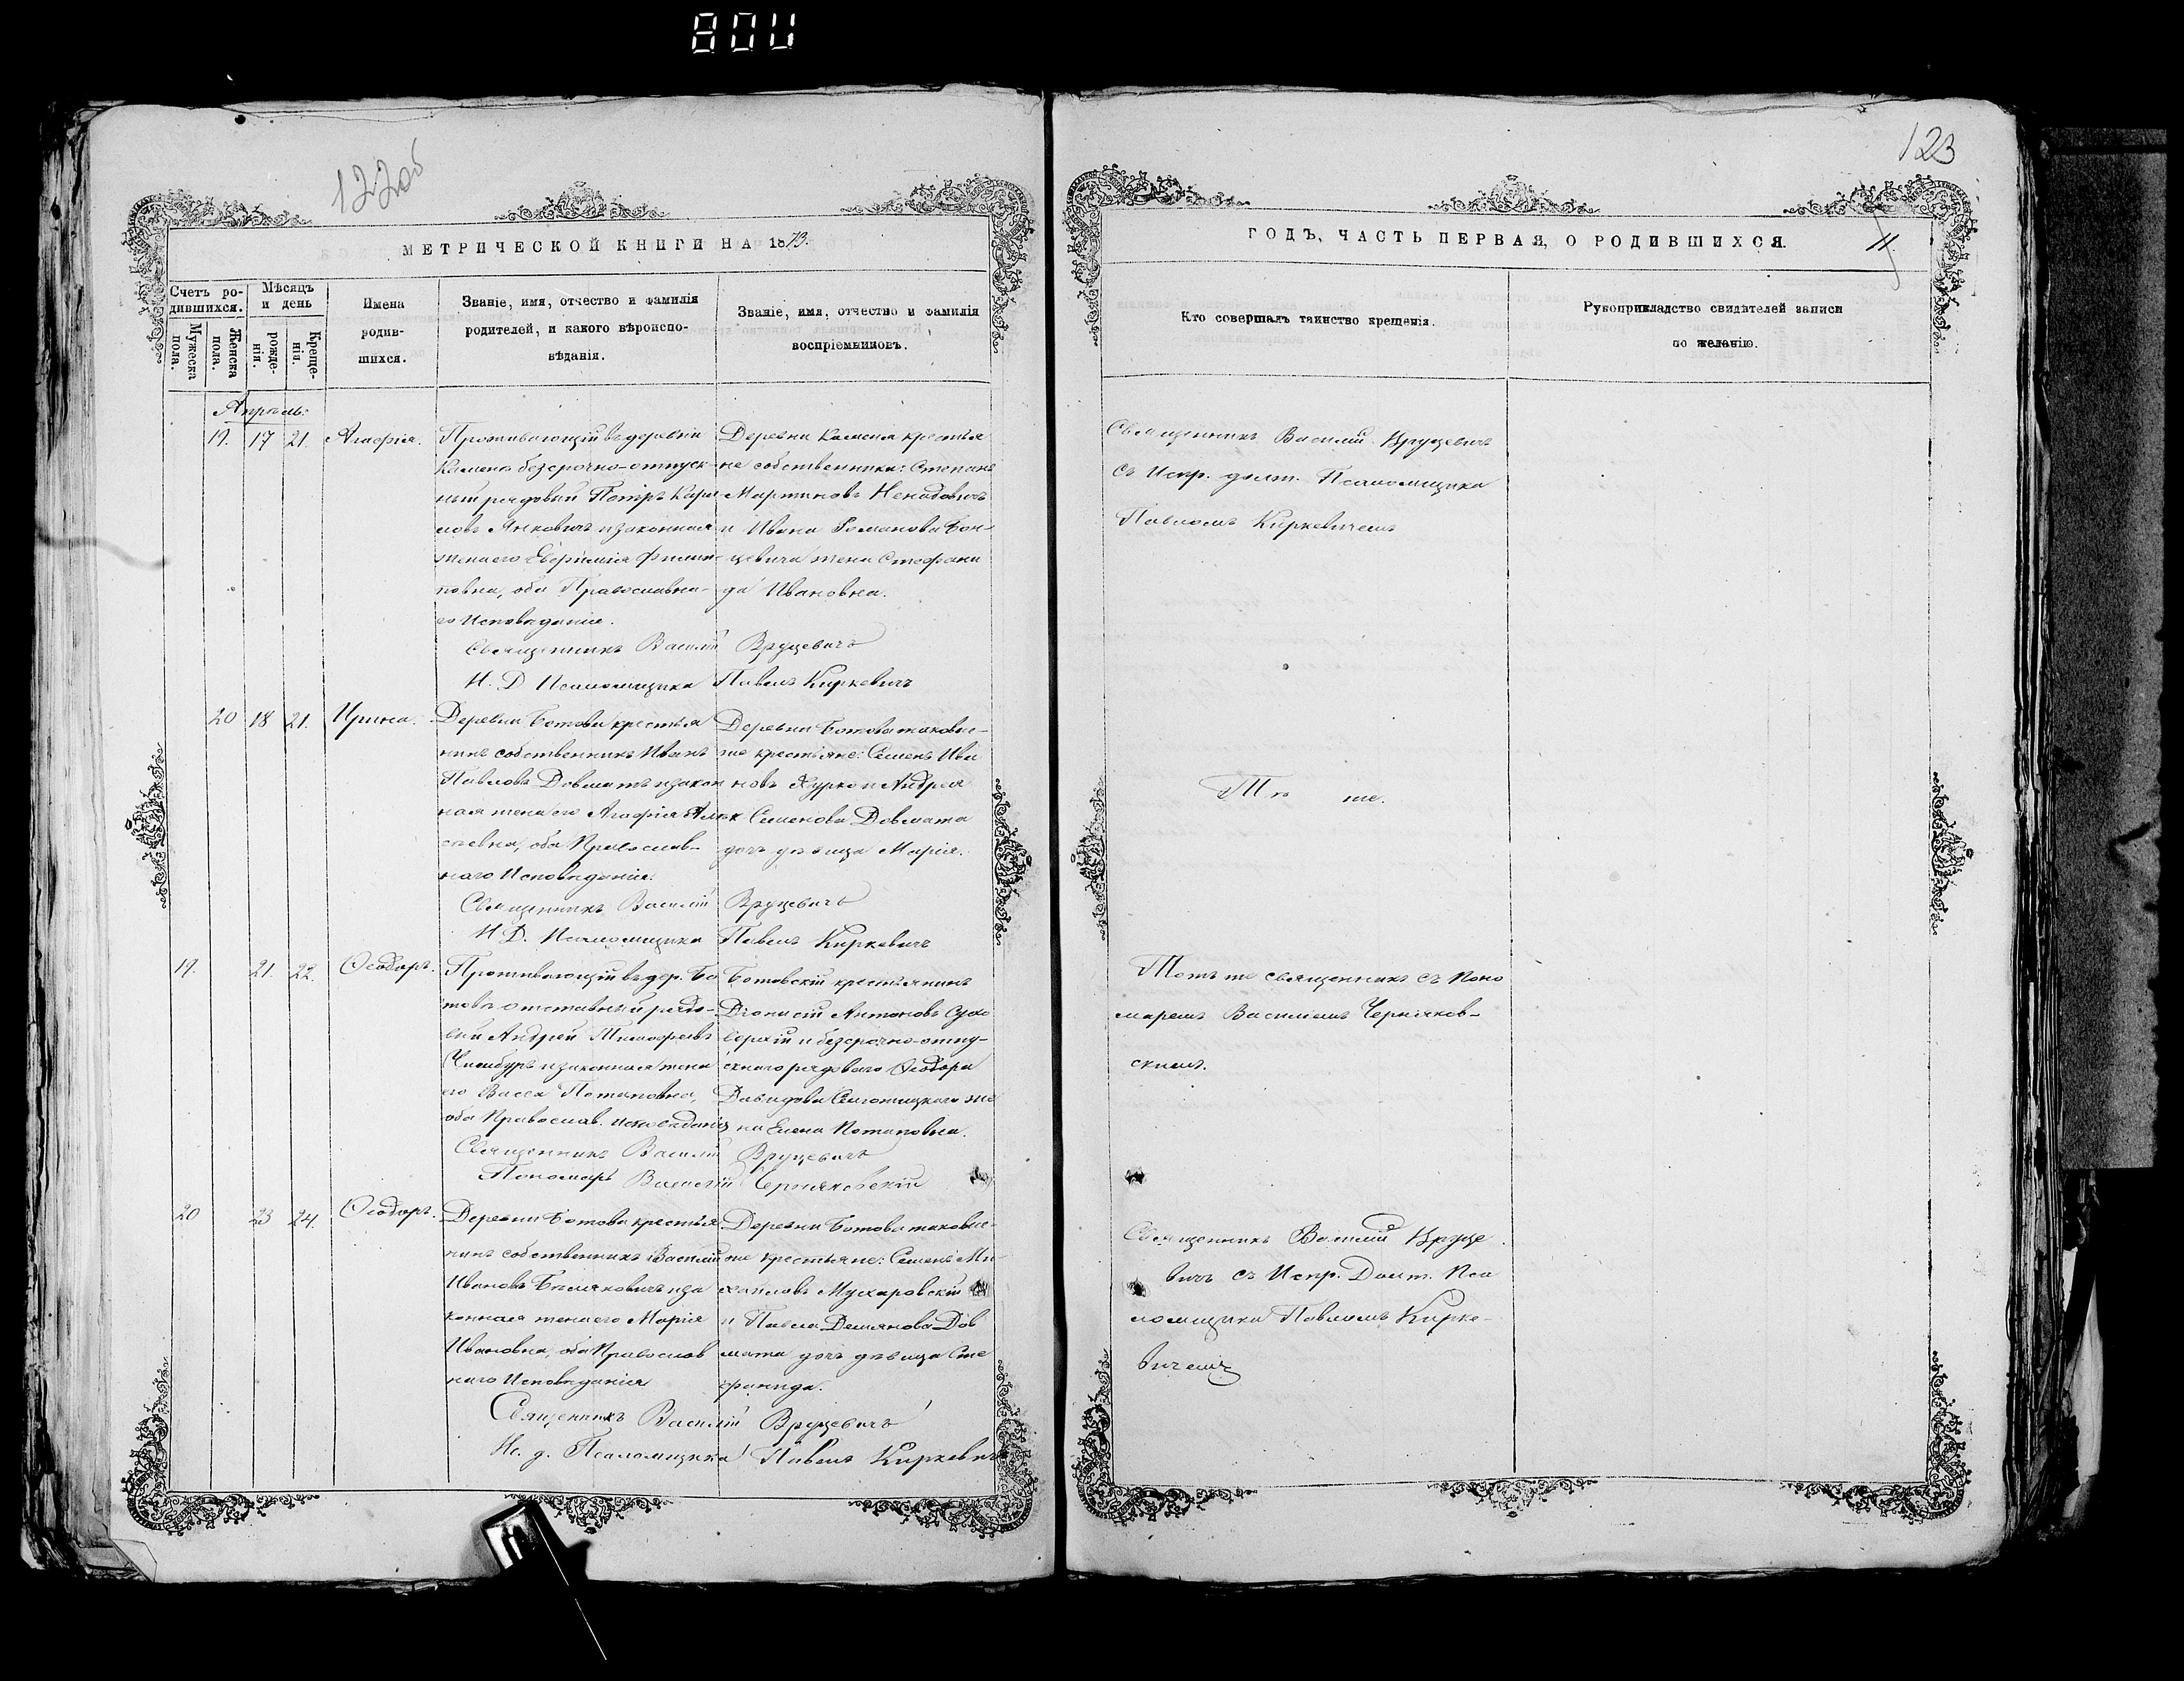 800
122об
123
МЕТРИЧЕСКОЙ КНИГИ НА 1873.
Счетъ ро-
дившихся.
Мужеска пола.
Женска пола.
Мѣсяцъ
и день
рожде-
нія.
Креще-
нія.
Имена
родив-
шихся.
Званіе, имя, отчество и фамилія
родителей, и какого вѣроиспо-
вѣданія.
Званіе, имя, отчество и фамилія
воспріемниковъ.
Апрѣль:
19. 17 21. Агафія.
Проживающій въ деревни
Камень безсрочно-отпуск-
ный рядовый Петръ Кари
ловъ Янковичъ и законная
жена его Евфимія Филип-
повна, оба Православна-
го Исповѣданія.
Деревни Камень крестья
не собственники: Степанъ
Мартиновъ Ненадовичъ
и Ивана Романова Бон-
цевича жена Стефани
да Ивановна.
Священникъ Василій Вруцевичъ
И. Д Псаломщика Павелъ Киркевичъ
20 18 21. Ирина.
Деревни Ботова крестья
нинъ собственникъ Иванъ
Павловъ Довматъ и закон
ная жена его Агафія Алек
сѣевна, оба Православ-
наго Исповѣданія.
Деревни Ботова таковые-
же крестьяне: Семенъ Ива
новъ и Андрея
Семенова Довмата
дочь дѣвица Марія.
Священникъ Василій Вруцевичъ
И. Д. Псаломщика Павелъ Киркевичъ
19. 21. 22. Ѳеодоръ.
Проживающій въ дер. Бо
товѣ отставный рядо-
вый Андрей Тимофеевъ
и законная жена
его Васса Потаповна,
оба Православ. исповѣданія
Ботовскій крестьянинъ
Діонисій Антоновъ Сухо
верхій и безсрочно-отпу-
скнаго рядоваго Ѳеодора
Давидова же
на Елена Потаповна.
Священникъ Василій Вруцевичъ
Пономарь Василій Черняковскій
20 23 24. Ѳеодоръ.
Деревни Ботова крестья
нинъ собственникъ Василій
Ивановъ и за
конная жена его Марія
Ивановна, оба Православ
наго Исповѣданія
Деревни Ботова таковые-
же крестьяне: Семенъ Ми-
хайловъ Мухаровскій
и Павла Демянова Дов
мата дочь дѣвица Сте
фанида.
Священникъ Василій Вруцевичъ
Ис. д. Псаломщика Павелъ Киркевичъ
ГОДЪ, ЧАСТЬ ПЕРВАЯ, О РОДИВШИХСЯ.
11.
Кто совершалъ таинство крещенія.
Рукоприкладство свидѣтелей записи
по желанію.
Священникъ Василій Вруцевичъ
съ Испр. долж. Псаломщика
Павломъ Киркевичемъ
Тѣ же.
Тотъ же священникъ съ Поно
маремъ Василіемъ Черняков-
скимъ.
Священникъ Василій Вруце
вичъ съ Испр. Долж. Пса
ломщика Павломъ Кирке-
вичемъ